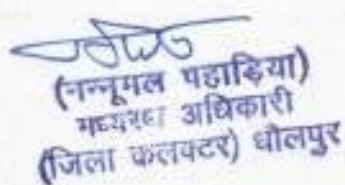 (नन्नूमल पहाड़िया)
मध्यस्थ अधिकारी
(जिला कलक्टर) धौलपुर